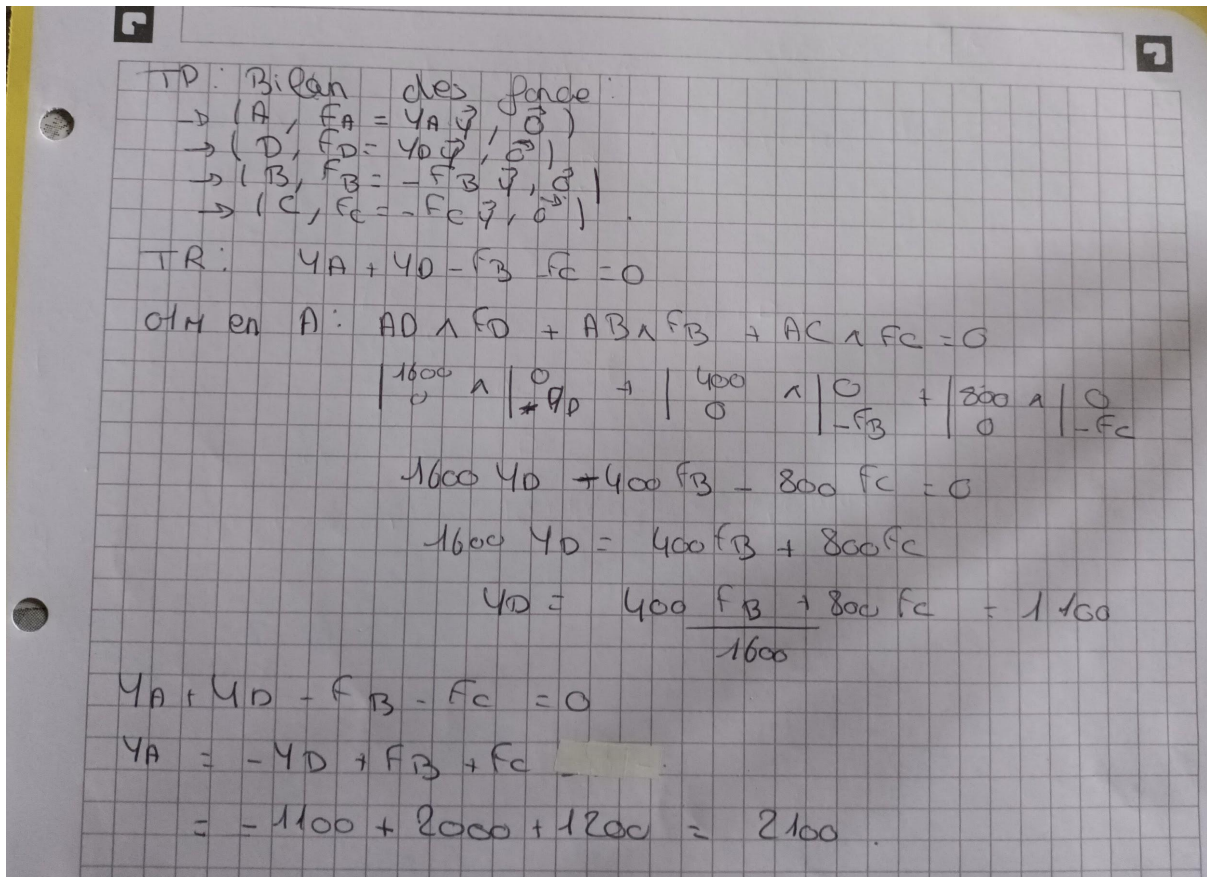 TD: Bilan des fonde:
→ (A, FA = YA ȳ, 0⃗)
→ (D, FD = YD ȳ, 0⃗)
→ (B, FB = -FB ȳ, 0⃗)
→ (C, FC = -FC ȳ, 0⃗).
TR: YA + YD - FB - FC = 0
en A: AD ∧ FD + AB ∧ FB + AC ∧ FC = 0
|1600 0 ∧ |0 YD + |400 0 ∧ |0 -FB + |800 0 ∧ |0 -FC
1600 YD +400 FB - 800 FC = 0
1600 YD = 400 FB + 800 FC
YD = 400 FB + 800 FC = 1100
1600
YA + YD - FB - FC = 0
YA = -YD + FB + FC
= -1100 + 2000 + 1200 = 2100.